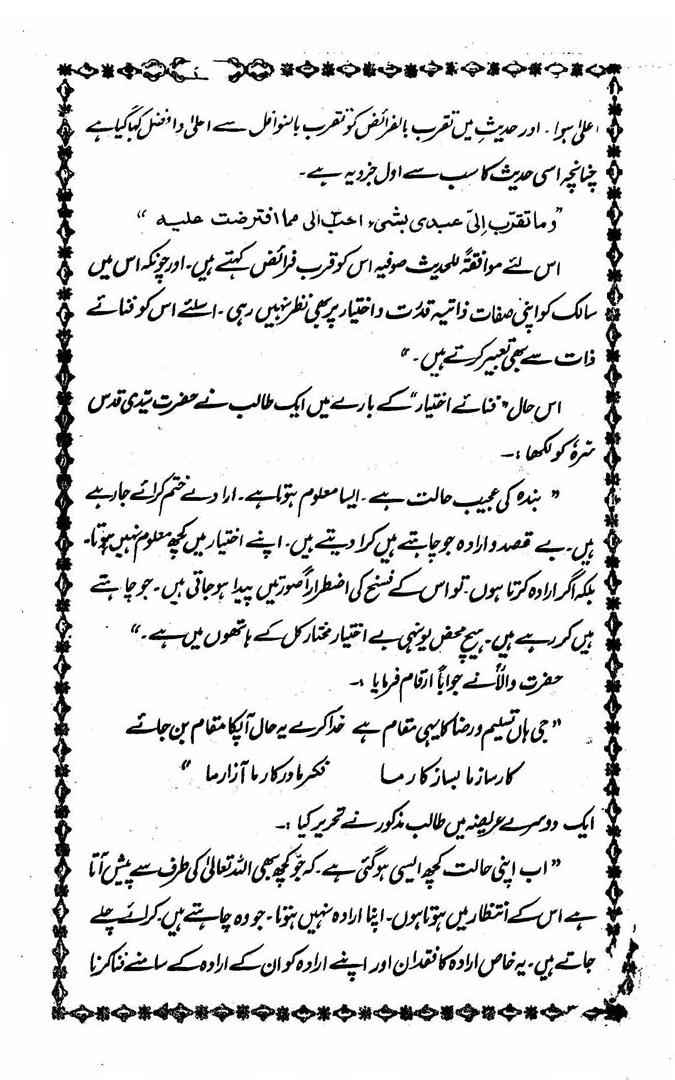 اعلیٰ ہوا ۔ اور حدیث میں تقرب بالفرائض کو تقرب بالنوافل سے اعلیٰ و افضل کہا گیا ہے
چنانچہ اسی حدیث کا سب سے اول جزو یہ ہے ۔
”وما تقرّب اِلیّ عبدی بشیء احبّ الی مما افترضت علیہ“
اس لئے موافقۃً للحدیث صوفیہ اس کو قرب فرائض کہتے ہیں ۔ اور چونکہ اس میں
سالک کو اپنی صفات ذاتیہ قدرت و اختیار پر بھی نظر نہیں رہی ۔ اسلئے اس کو فنائے
ذات سے بھی تعبیر کرتے ہیں ۔“
اس حال ”فنائے اختیار“ کے بارے میں ایک طالب نے حضرت سیّدی قدس
سرہٗ کو لکھا :۔
”بندہ کی عجیب حالت ہے ۔ ایسا معلوم ہوتا ہے ۔ ارادے ختم کرائے جا رہے
ہیں ۔ بے قصد و ارادہ جو چاہتے ہیں کرا دیتے ہیں ۔ اپنے اختیار میں کچھ معلوم نہیں ہوتا ۔
بلکہ اگر ارادہ کرتا ہوں ۔ تو اس کے فسخ کی اضطراراً صورتیں پیدا ہو جاتی ہیں ۔ جو چاہتے
ہیں کر رہے ہیں ۔ ہیچ محض یونہی بے اختیار مختار کل کے ہاتھوں میں ہے ۔“
حضرت والاؒ نے جواباً ارقام فرمایا :۔
”جی ہاں تسلیم و رضا کا یہی مقام ہے خدا کرے یہ حال آپکا مقام بن جائے
کار ساز ما بساز کار ما فکر ما در کار ما آزار ما“
ایک دوسرے عریضہ میں طالب مذکور نے تحریر کیا :۔
”اب اپنی حالت کچھ ایسی ہو گئی ہے ۔ کہ جو کچھ بھی اللہ تعالیٰ کی طرف سے پیش آتا
ہے اس کے انتظار میں ہوتا ہوں ۔ اپنا ارادہ نہیں ہوتا ۔ جو وہ چاہتے ہیں ۔ کرائے چلے
جاتے ہیں ۔ یہ خاص ارادہ کا فقدان اور اپنے ارادہ کو ان کے ارادہ کے سامنے فنا کرنا